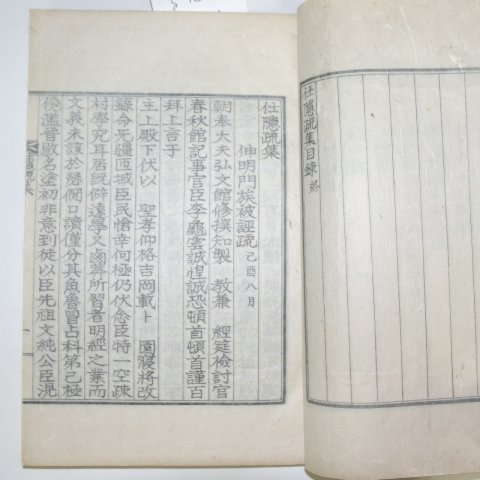 仕隱疏集目錄 終
仕隱疏集
伸明門族被誣疏 己酉八月
朝奉大夫弘文館修撰知製 教兼 經筵檢討官
春秋館記事官臣李龜雲誠惶誠恐頓首頓首謹百
拜上言于
主上殿下伏以 聖孝仰格吉岡載卜 園寢將改
縣命无疆匝域臣民愴幸何極仍伏念臣特一空疎
村學究耳居旣僻遠學又鹵莽所習者明經之業而
文義未諒於 口讀僅分其魚魯冒占科第已極
濫 敗名塗初非意到徒以臣先祖文純公臣滉